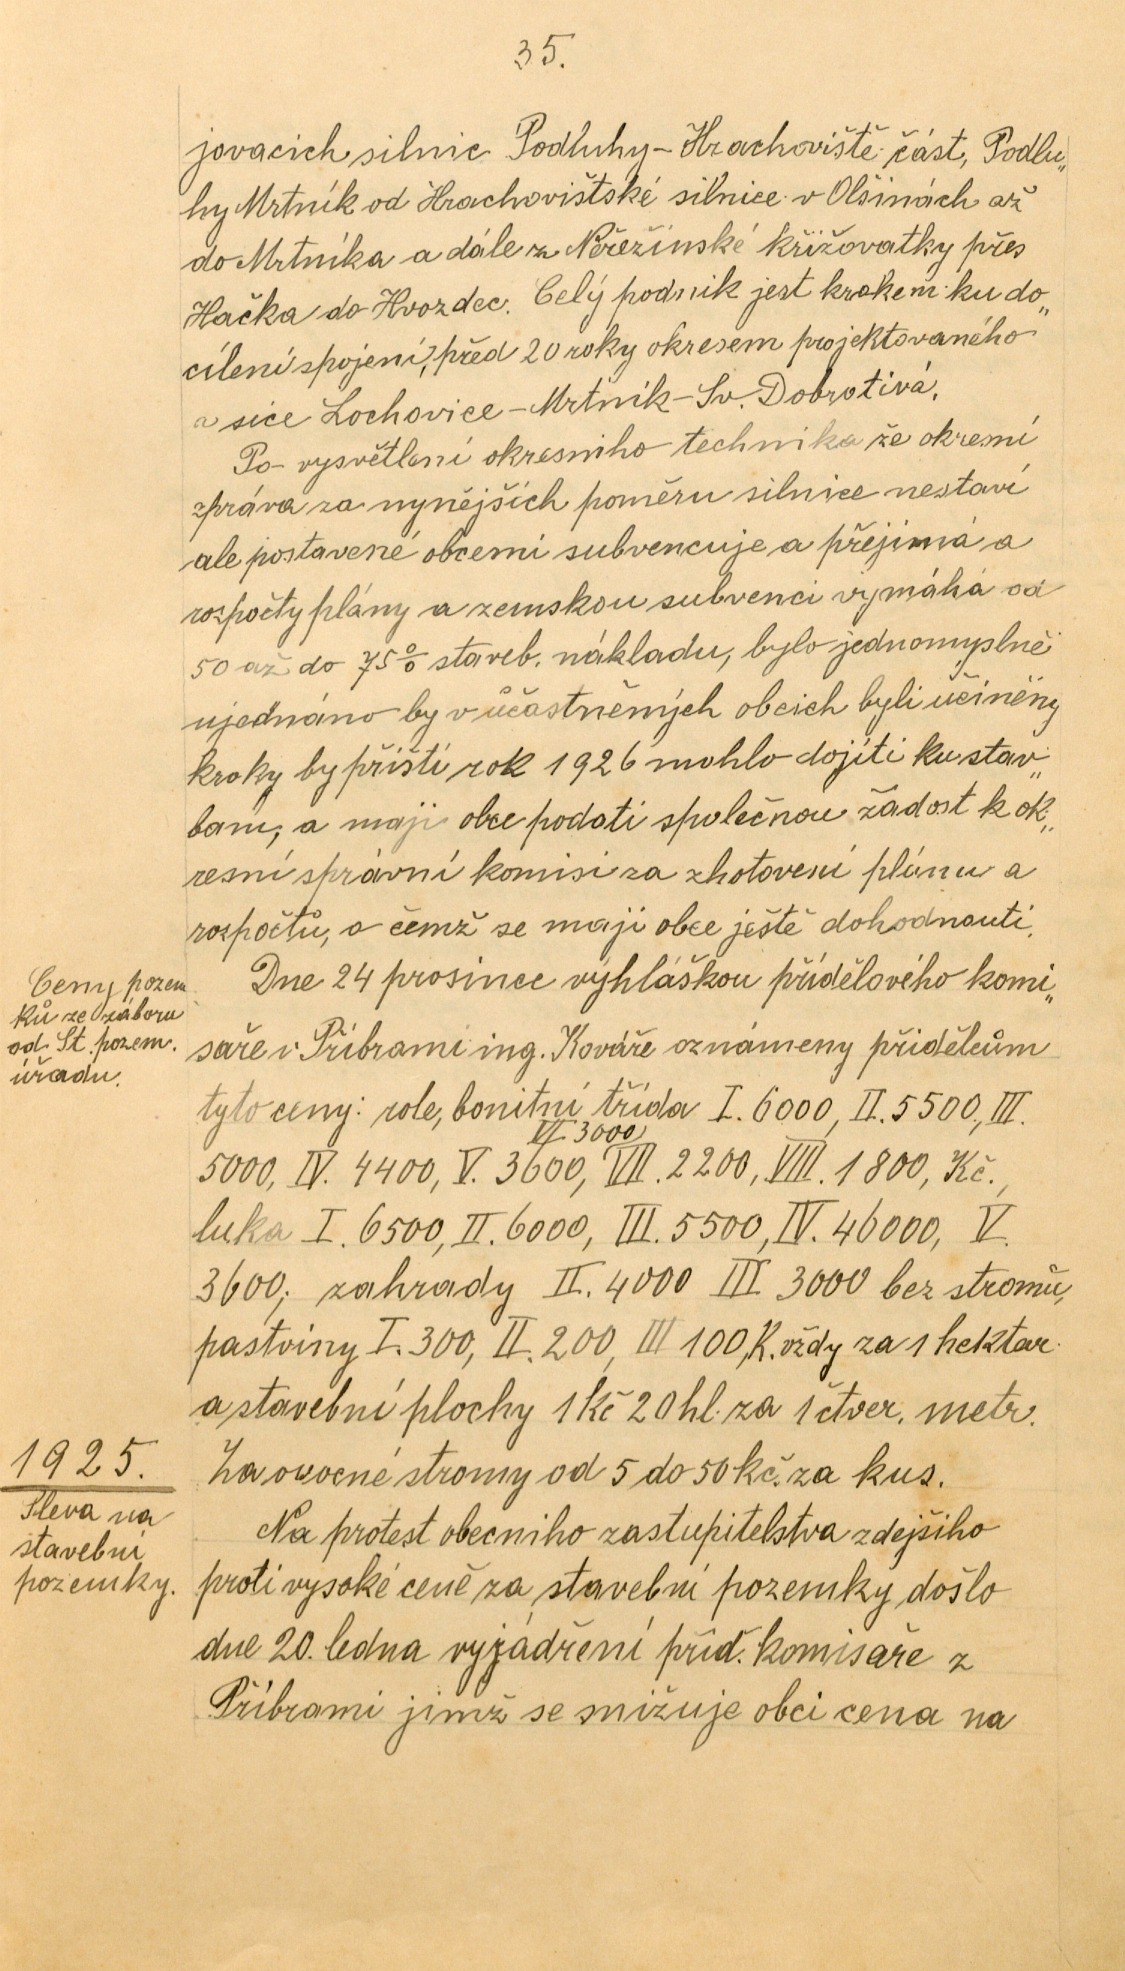 35.
jovacich silnic Podluhy – Hrachoviště část, Podlu„
hy Mrtník od Hrachovištské silnice v Olšinách až
do Mrtníka a dále z Neřežínské křižovatky přes
Hačka do Hvozdec. Celý podnik jest krokem ku do„
cílení spojení, před 20 roky okresem projektovaného
a sice Lochovice – Mrtník – Sv. Dobrotivá.
Po vysvětlení okresního technika že okresní
zpráva za nynějších poměru silnice nestaví
ale postavené obcemi subvencuje a přejímá a
rozpočty plány a zemskou subvenci vymáhá od
50 až do 75 % staveb. nákladu, bylo jednomyslně
ujednáno by v účastněných obcích byli učiněny
kroky by příští rok 1926 mohlo dojíti ku stav„
bam, a maji obce podati společnou žádost k ok„
resní správní komisi za zhotovení plánu a
rozpočtů, o čemž se maji obce ještě dohodnouti.
Ceny pozem
ků ze záboru
od St. pozem.
úřadu.
Dne 24 prosince vyhláškou přídělového komi„
saře v Příbrami ing. Kováře oznámeny přídělcům
tyto ceny: role, bonitní třída I. 6000, II. 5500, III.
VI. 3000
5000, IV. 4400, V. 3600, VII. 2200, VIII. 1800, Kč.,
luka I. 6500, II. 6000, III. 5500, IV. 46000, V.
3600; zahrady II. 4000 III 3000 bez stromů,
pastviny I. 300, II. 200, III 100, K. vždy za 1 hektar
a stavební plochy 1 kč 20 hl. za 1 čtver. metr.
1925.
Za ovocné stromy od 5 do 50 kč. za kus.
Sleva na
stavební
pozemky.
Na protest obecního zastupitelstva zdejšího
proti vysoké ceně za stavební pozemky došlo
dne 20. ledna vyjádření příd. komisaře z
Příbrami jimž se snižuje obci cena na